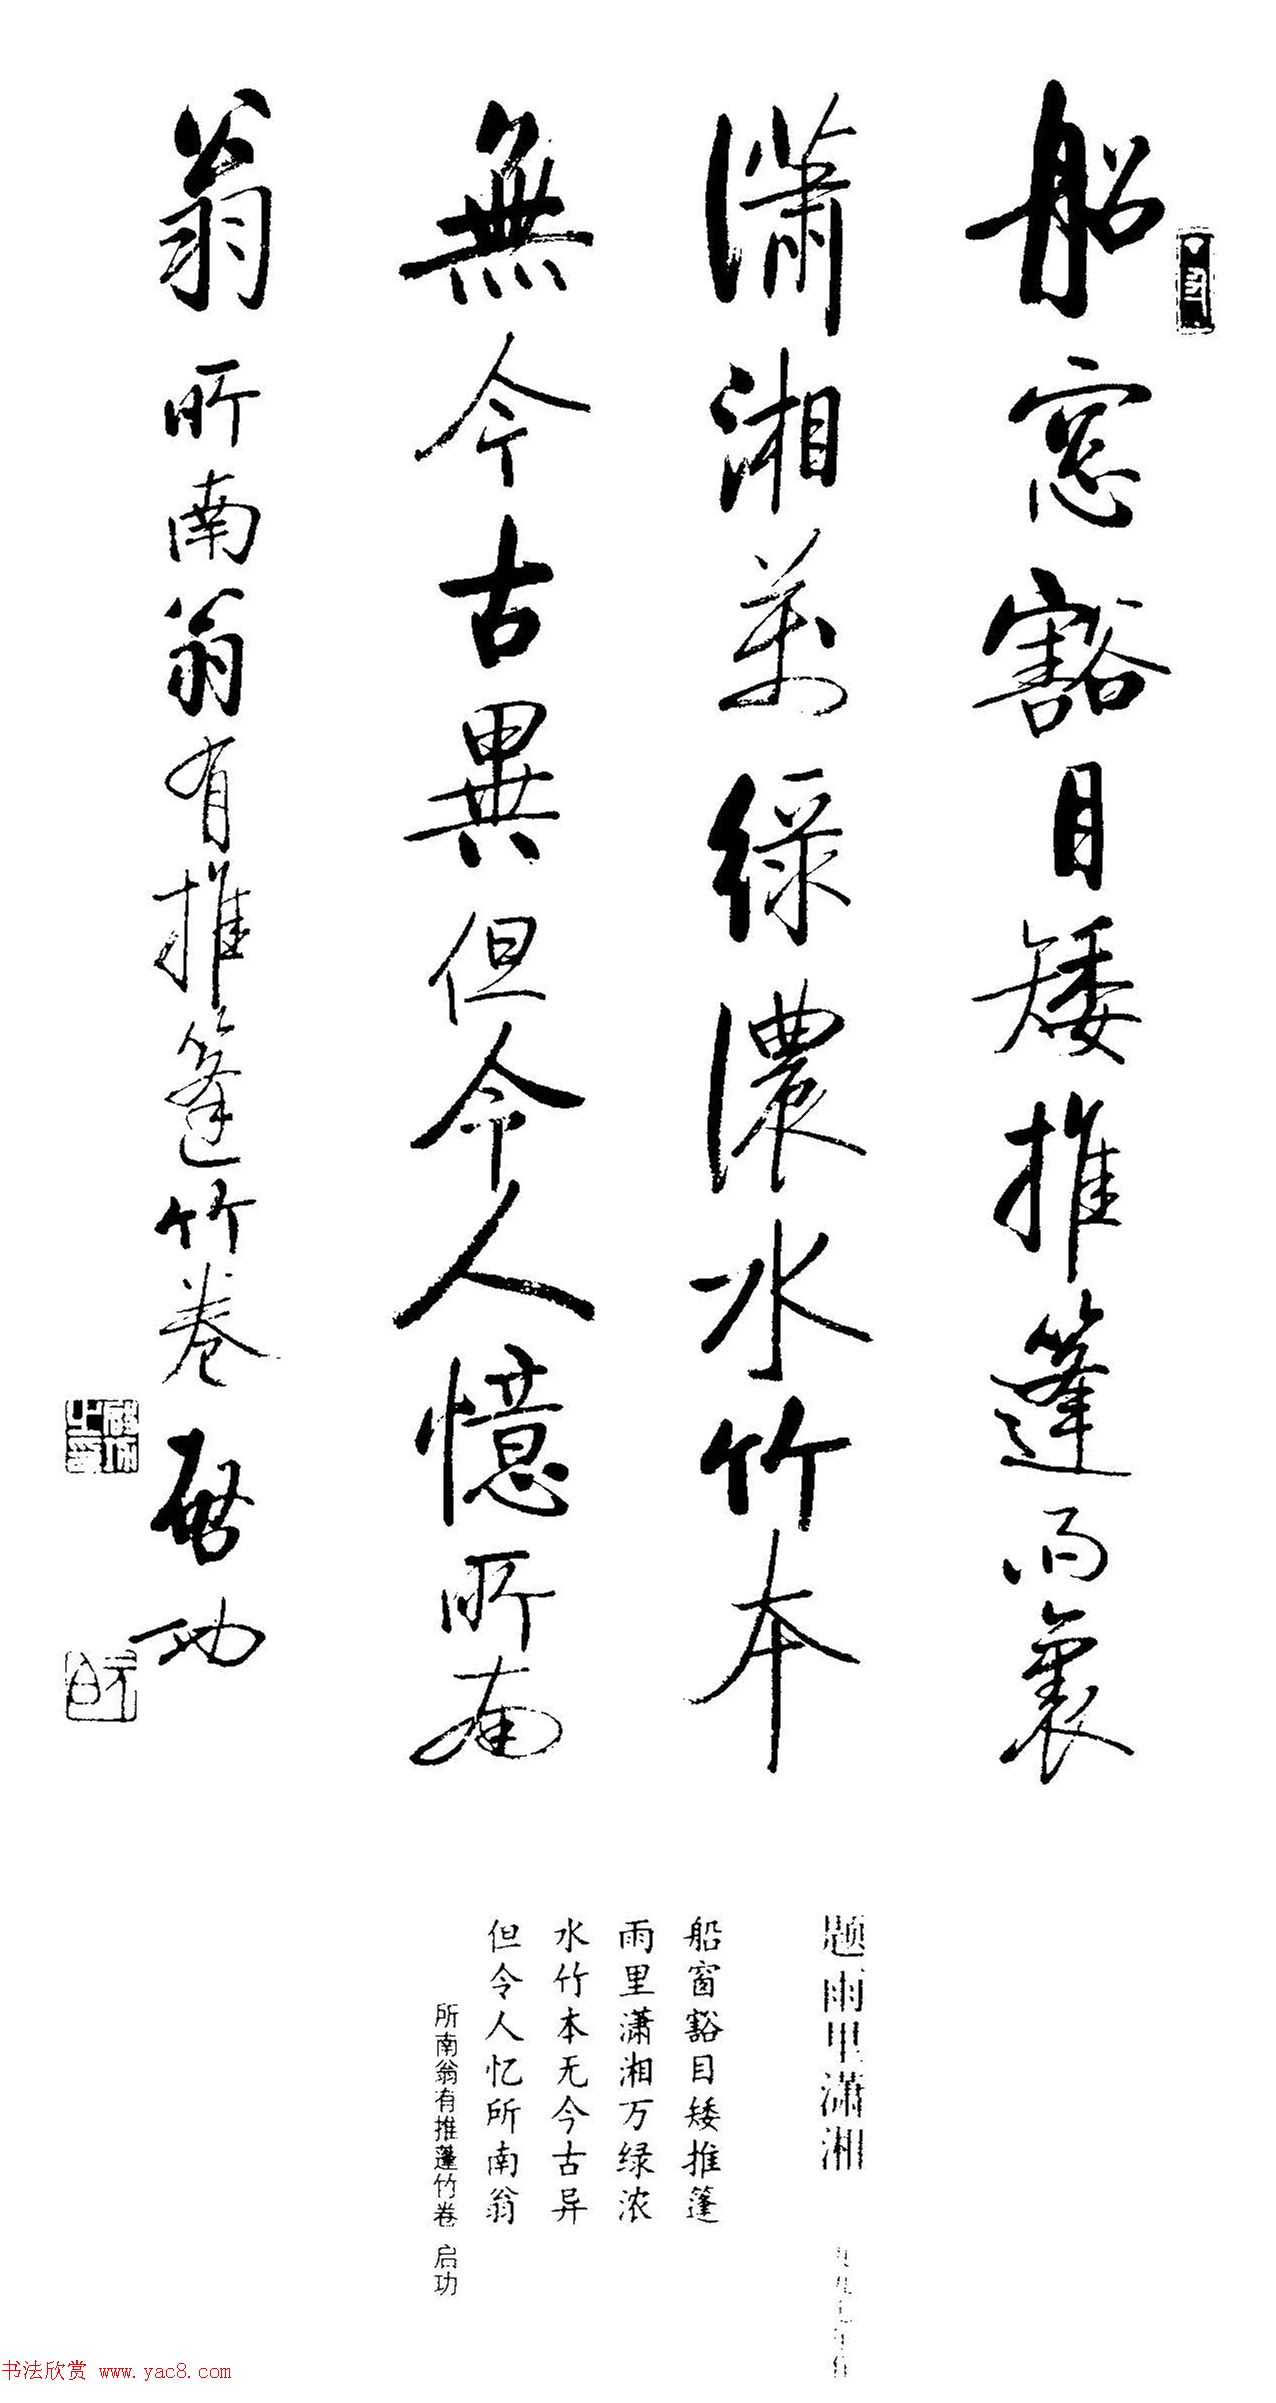 船窓豁目矮推篷雨裏
瀟湘萬緑濃水竹本
無今古異但令人憶所南
翁 所南翁有推篷竹卷 啓功
题雨里潇湘
船窗豁目矮推篷
雨里潇湘万绿浓
水竹本无今古异
但令人忆所南翁
所南翁有推篷竹卷 启功
书法欣赏 www.yac8.com